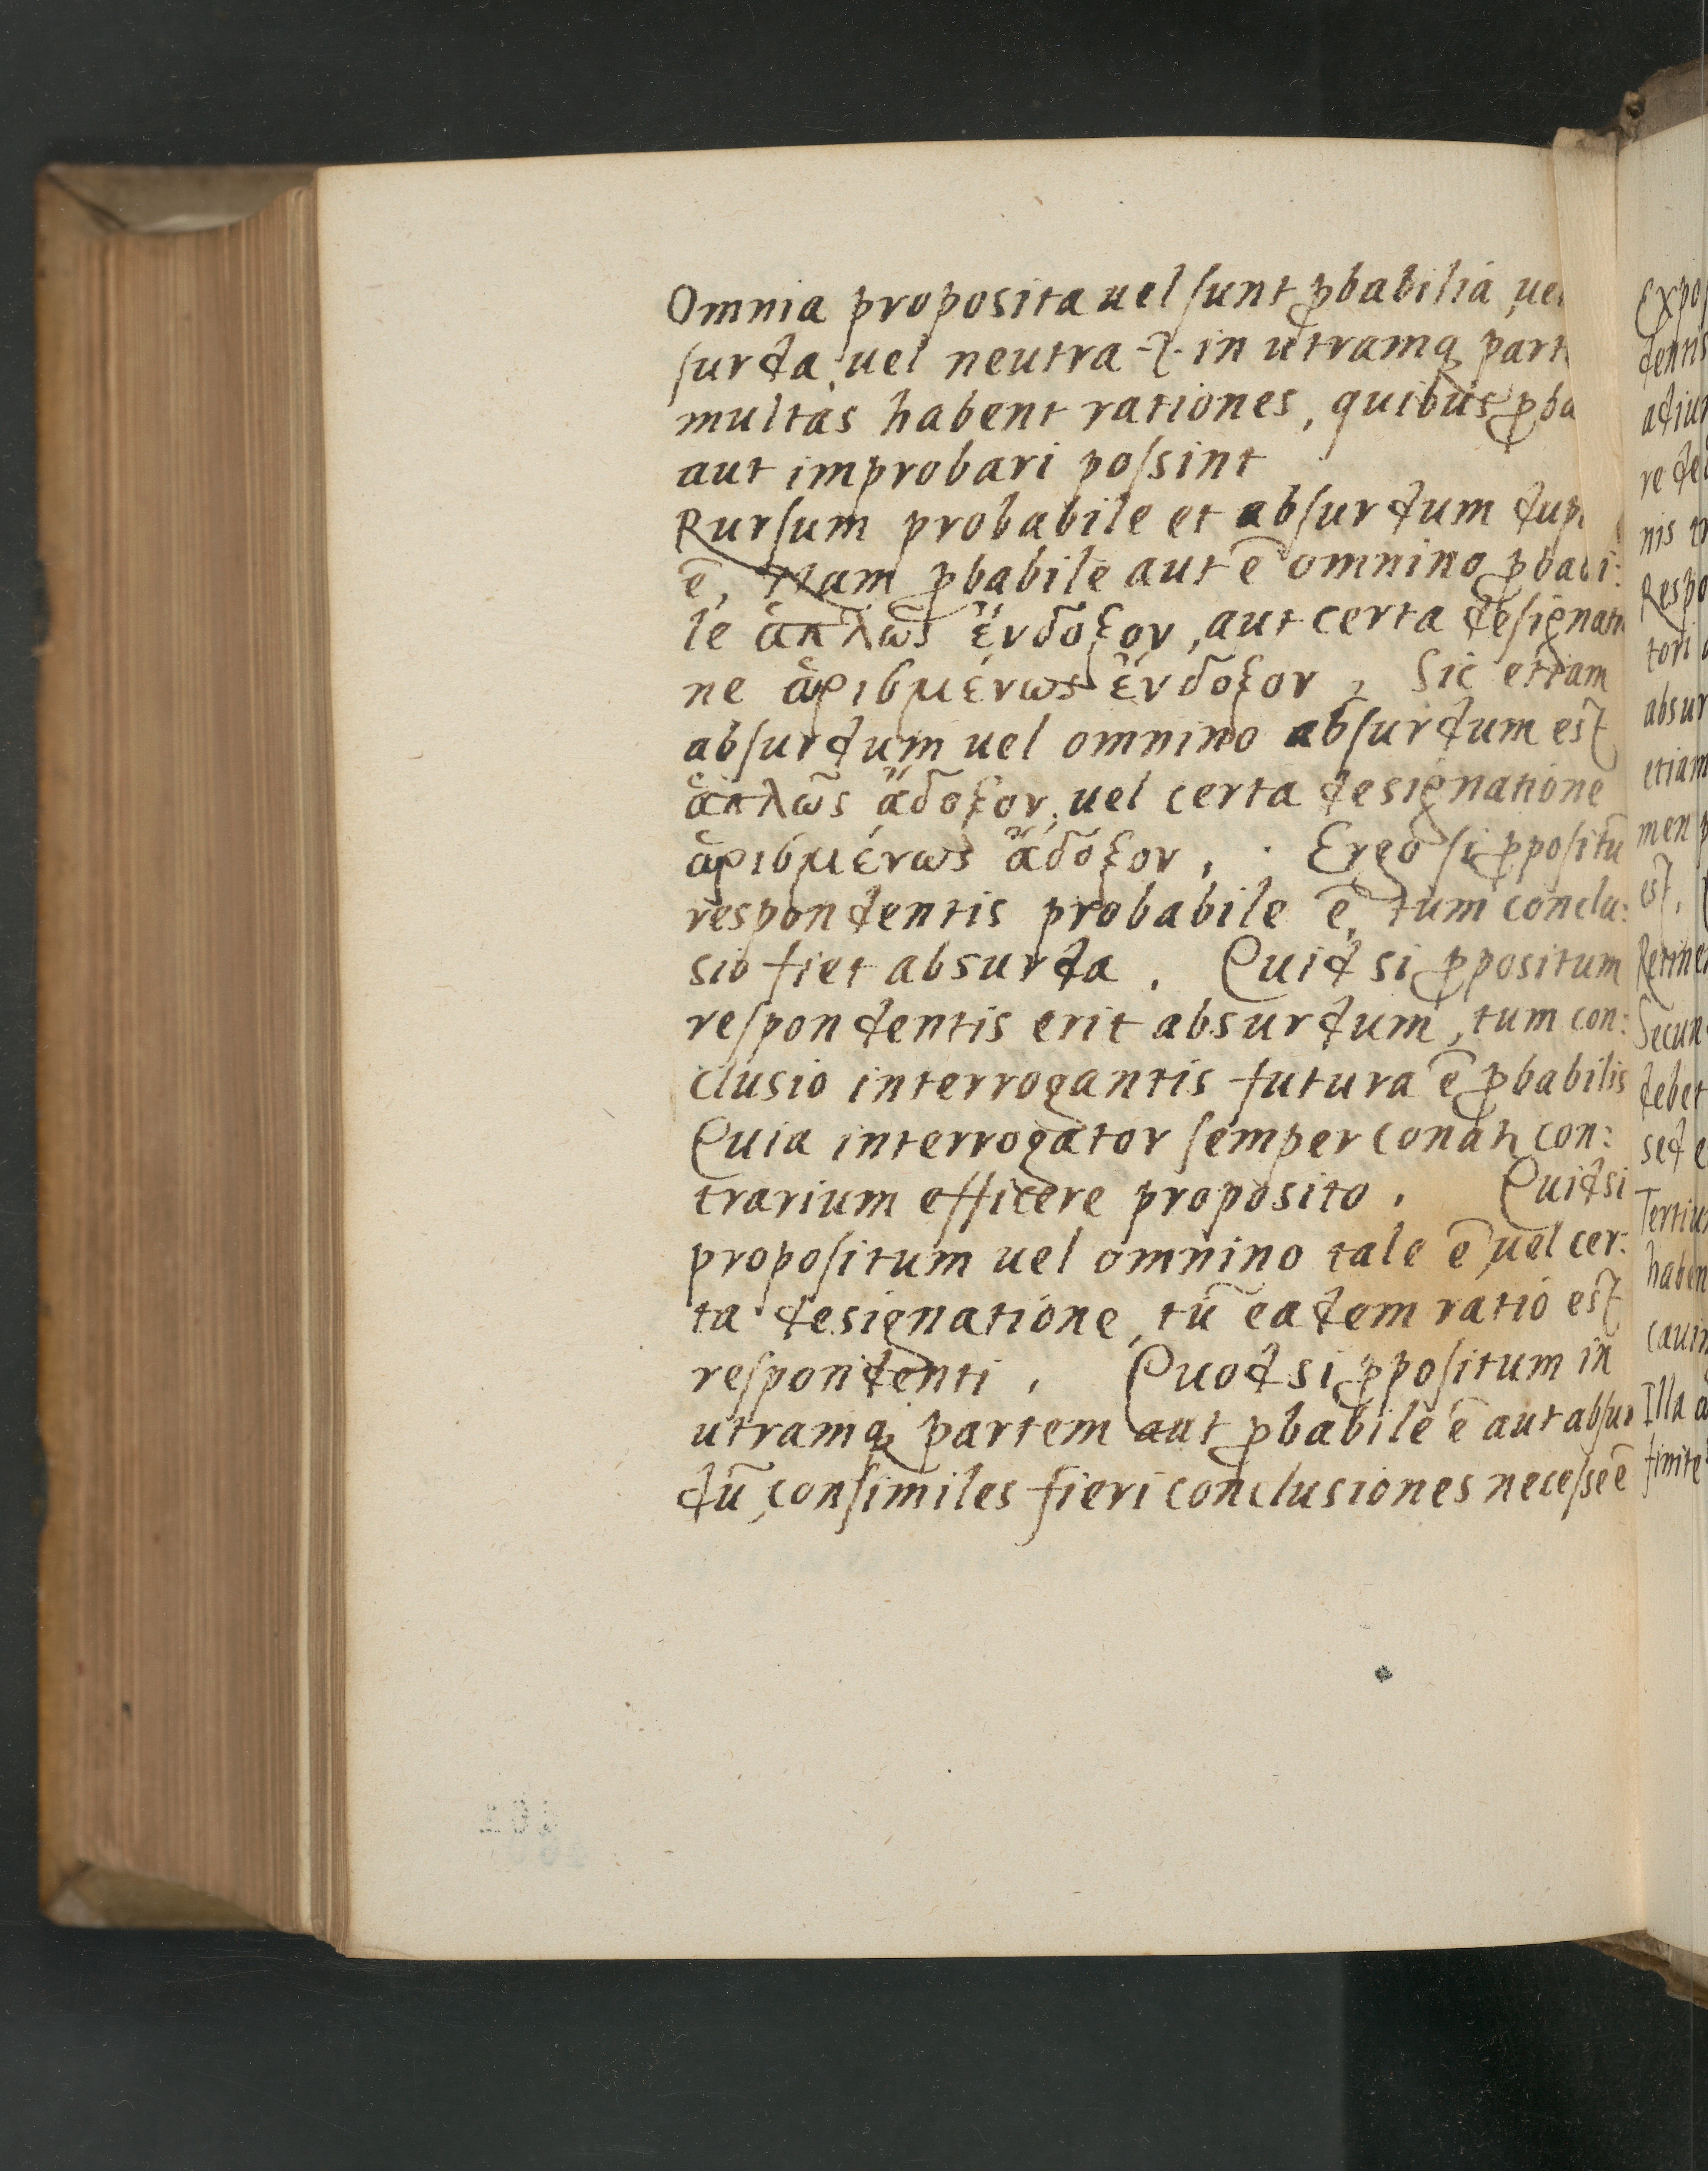 Omnia proposita uel sunt ꝓbabilia, uel
surda, uel neutra .i. in utramq̃ part
multas habent rationes, quibus ꝓba
aut improbari possint
Rursum probabile et absurdum dup
ẽ, Nam ꝓbabile aut ẽ omnino ꝓbabi:
le ἁπλῶς ἔνδοξον, aut certa designati
ne ὡρισμένως ἔνδοξον, Sic etiam
absurdum uel omnino absurdum est
ἁπλῶς ἄδοξον, uel certa designatione
ὡρισμένως ἄδοξον, . Ergo si ꝓpositũ
respondentis probabile ẽ, tum conclu:
sio fiet absurda. Quid si ꝓpositum
respondentis erit absurdum, tum con:
clusio interrogantis futura ẽ ꝓbabilis
Quia interrogator semper conatꝛ con:
trarium efficere proposito. Quid si
propositum uel omnino tale ẽ, uel cer:
ta designatione, tũ eadem ratio est
respondenti. Quod si ꝓpositum in
utramq̃ partem aut ꝓbabile ẽ aut absur
dũ, consimiles fieri conclusiones necesse ẽ
Expos
dentis
adiun
re deb
nis tr
Respo
tori a
absur
etiam
men p
est,
Retine
Secun
debet
sed e
Tertiu
haben
cauin
Illa a
finite